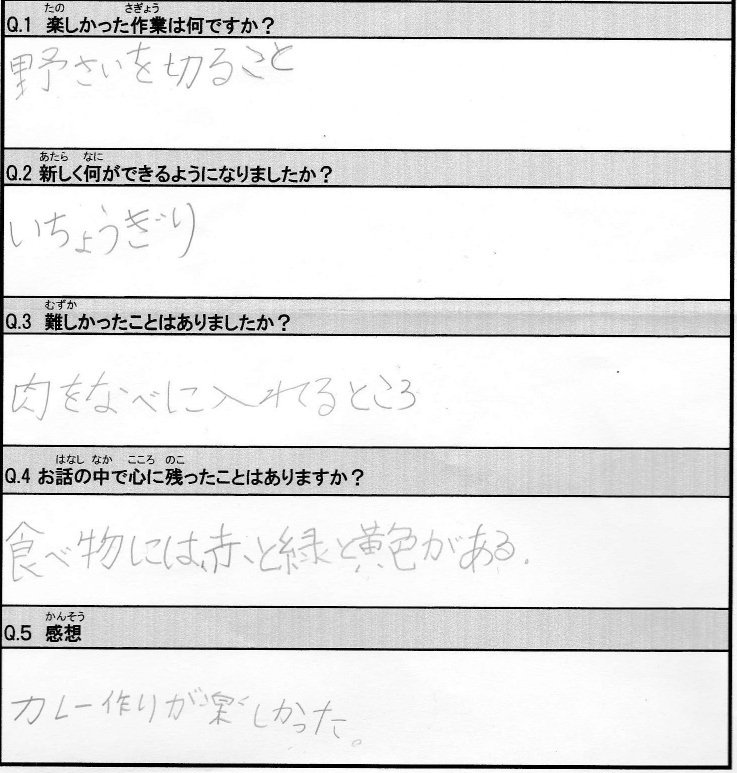 たの さぎょう
Q.1 楽しかった作業は何ですか？
野さいを切ること
あたら なに
Q.2 新しく何ができるようになりましたか？
いちょうぎり
むずか
Q.3 難しかったことはありましたか？
肉をなべに入れてるところ
はなし なか こころ のこ
Q.4 お話の中で心に残ったことはありますか？
食べ物には、赤、と緑と黄色がある.
かんそう
Q.5 感想
カレー作りが楽しかった。